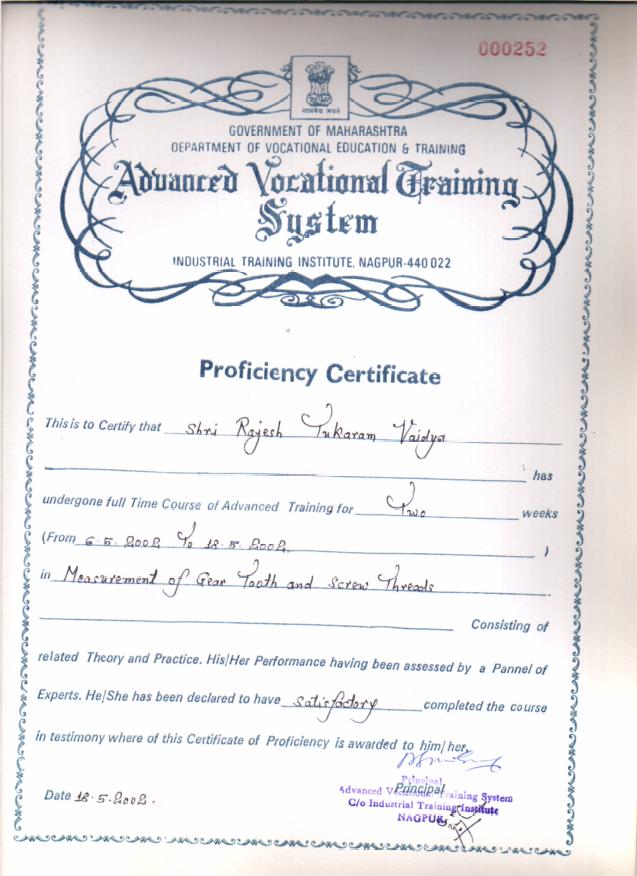 000252
सत्यमेव जयते
GOVERNMENT OF MAHARASHTRA
DEPARTMENT OF VOCATIONAL EDUCATION & TRAINING
Advanced Vocational Training
System
INDUSTRIAL TRAINING INSTITUTE, NAGPUR-440 022
Proficiency Certificate
This is to Certify that Shri Rajesh Tukaram Vaidya
has
undergone full Time Course of Advanced Training for Two weeks
(From 6.5.2002 To 18.5.2002. )
in Measurement of Gear Tooth and Screw Threads
Consisting of
related Theory and Practice. His/Her Performance having been assessed by a Pannel of
Experts. He/She has been declared to have satisfactory completed the course
in testimony where of this Certificate of Proficiency is awarded to him/her.
Principal
Principal
Advanced Vocational Training System
C/o Industrial Training Institute
NAGPUR
Date 18.5.2002.